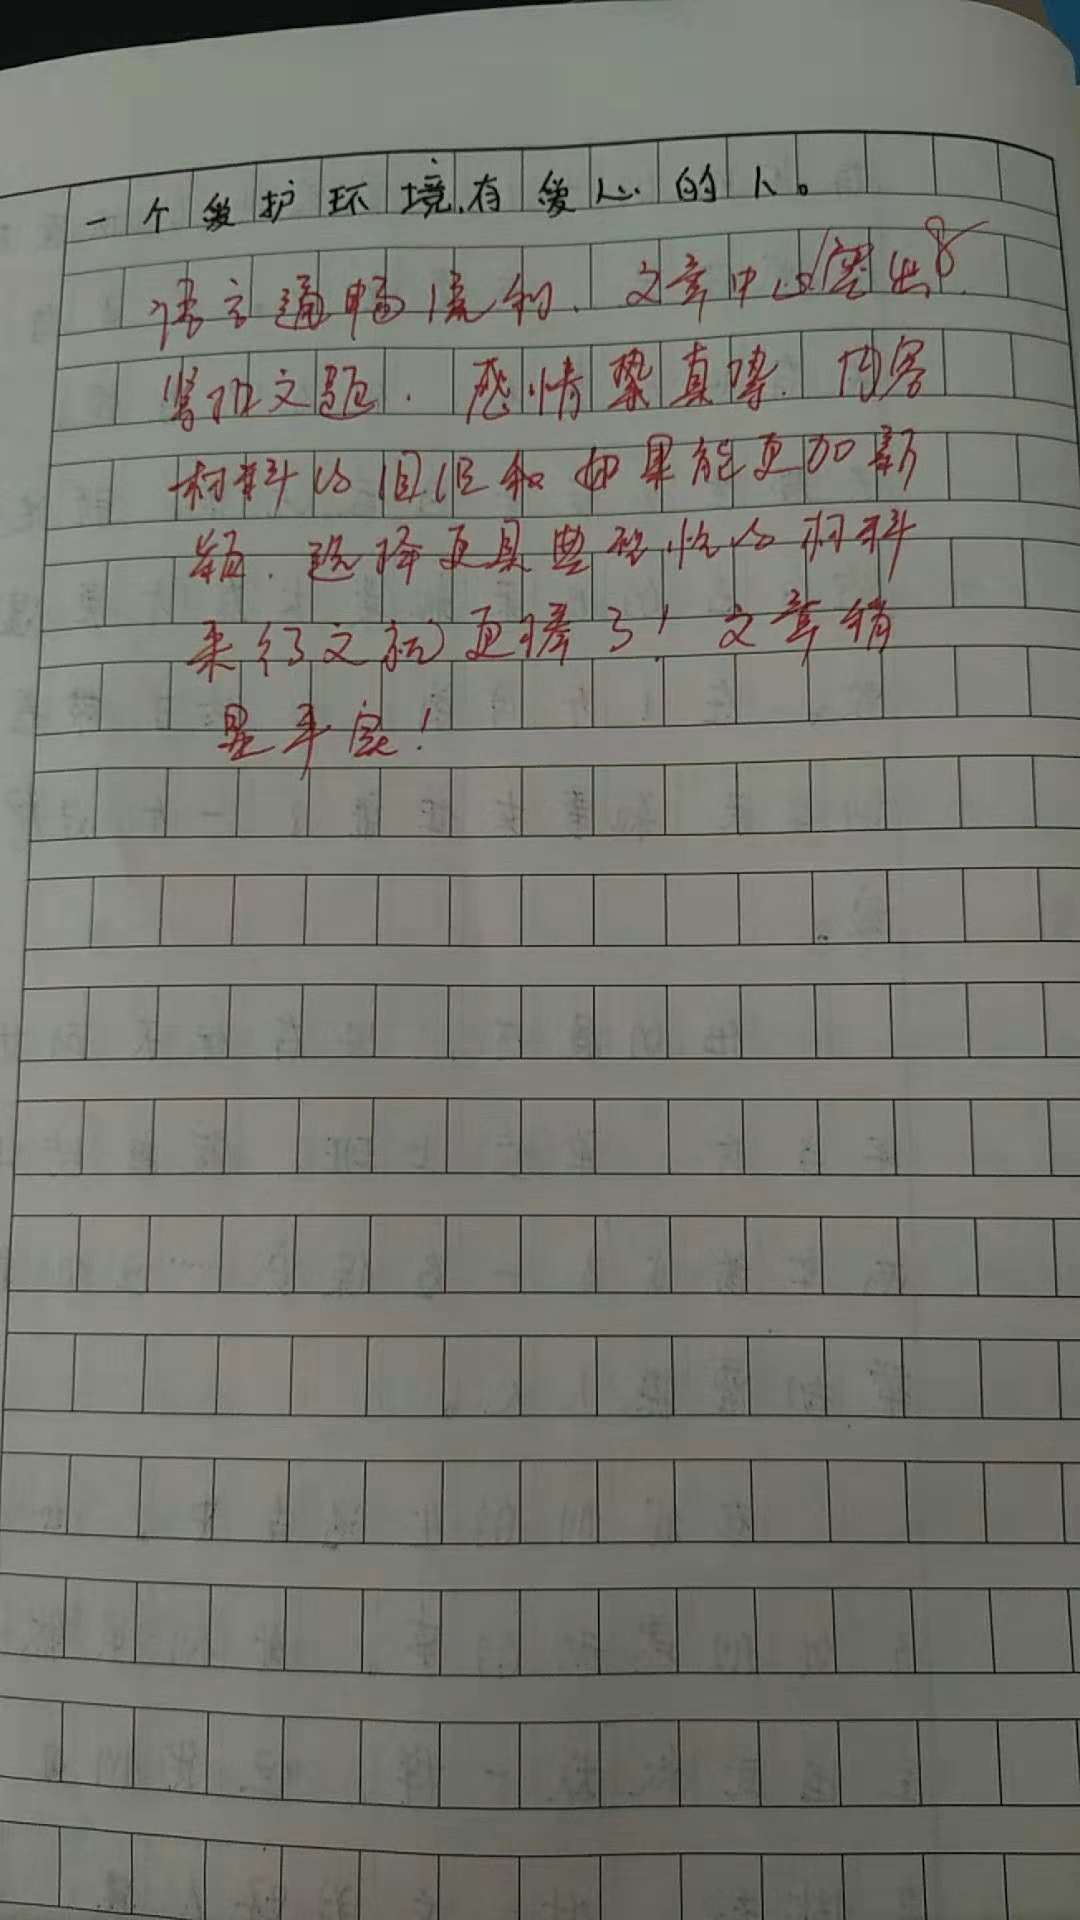 一个爱护环境.有爱心的人。
语言通畅流利.文章中心突出
紧扣文题.感情真挚.内容
材料的组织如果能更加新
颖.选择更具典型性的材料
来行文就更棒了！文章稍
显平实！